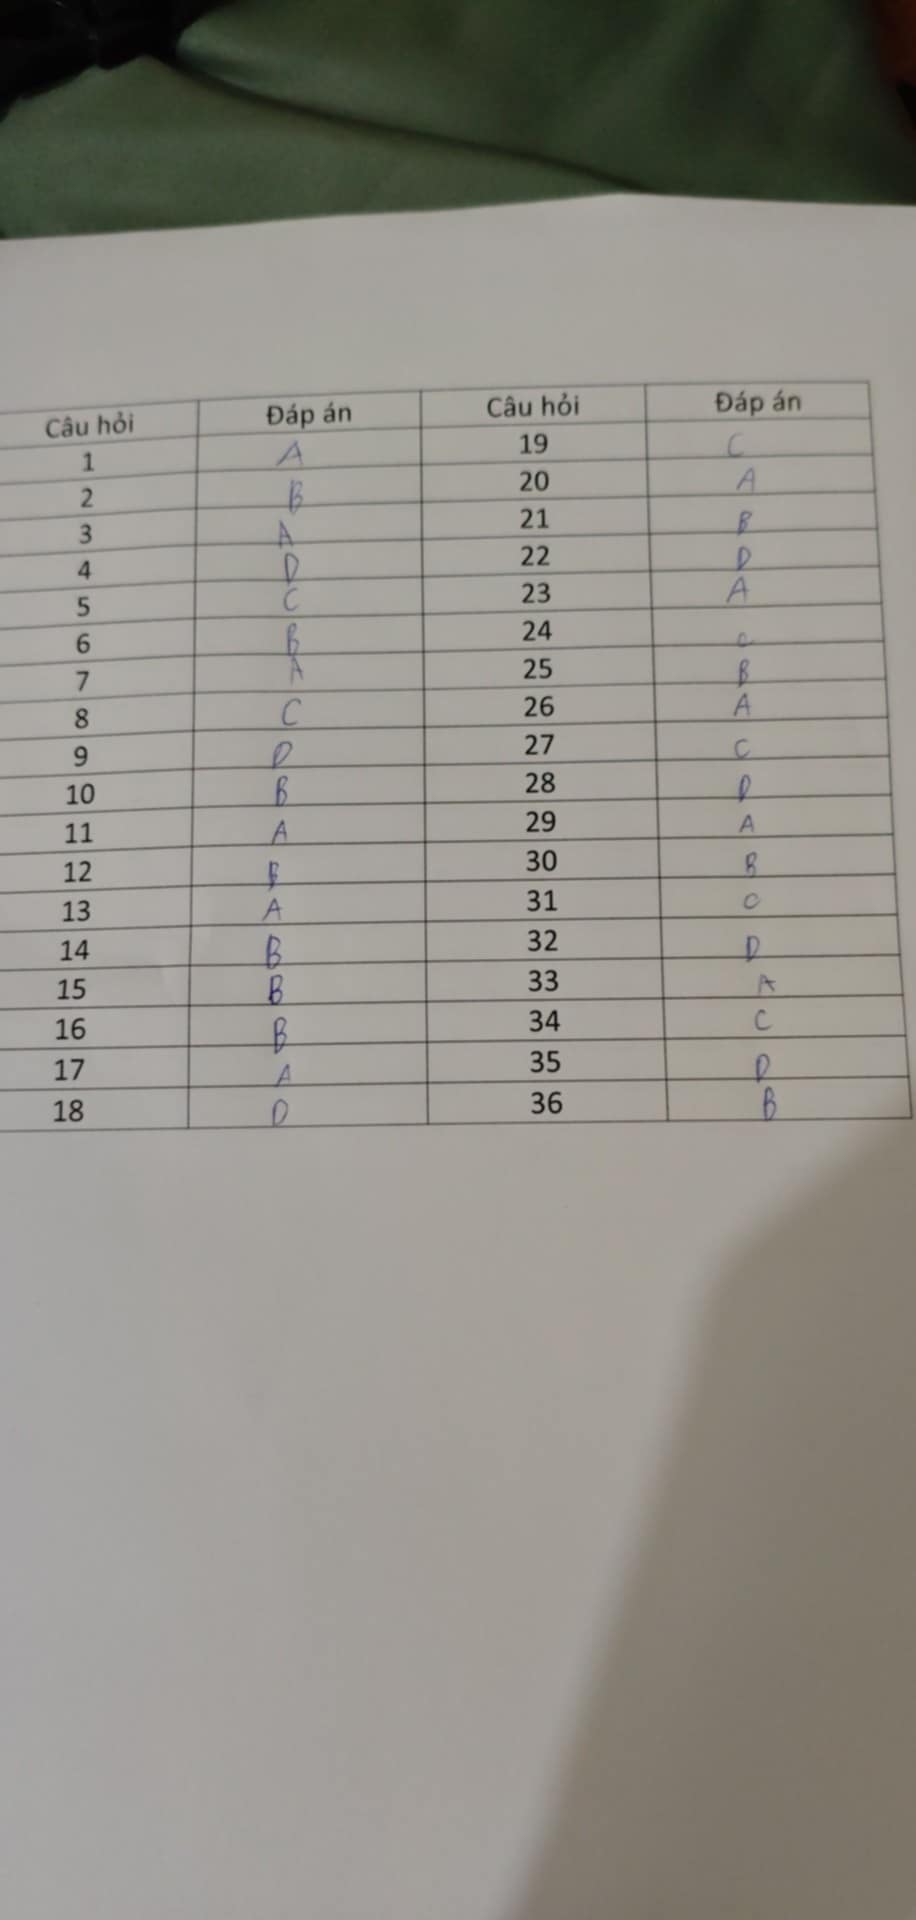 Câu hỏi Đáp án Câu hỏi Đáp án
1 A 19 C
2 B 20 A
3 A 21 B
4 D 22 D
5 C 23 A
6 B 24 C
7 A 25 B
8 C 26 A
9 D 27 C
10 B 28 D
11 A 29 A
12 B 30 B
13 A 31 C
14 B 32 D
15 B 33 A
16 B 34 C
17 A 35 D
18 D 36 B